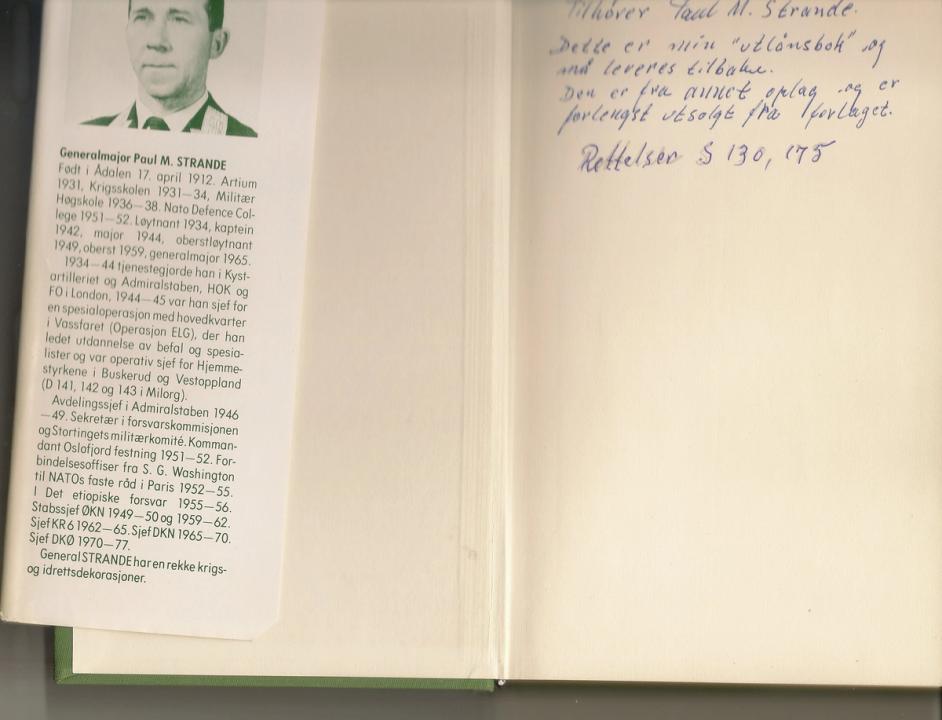 Generalmajor Paul M. STRANDE
Født i Ådalen 17. april 1912. Artium
1931, Krigsskolen 1931—34, Militær
Høgskole 1936—38. Nato Defence Col-
lege 1951—52. Løytnant 1934, kaptein
1942, major 1944, oberstløytnant
1949, oberst 1959, generalmajor 1965.
1934—44 tjenestegjorde han i Kyst-
artilleriet og Admiralstaben, HOK og
FO i London, 1944—45 var han sjef for
en spesialoperasjon med hovedkvarter
i Vassfaret (Operasjon ELG), der han
ledet utdannelse av befal og spesia-
lister og var operativ sjef for Hjemme-
styrkene i Buskerud og Vestoppland
(D 141, 142 og 143 i Milorg).
Avdelingssjef i Admiralstaben 1946
—49. Sekretær i forsvarskommisjonen
og Stortingets militærkomité. Komman-
dant Oslofjord festning 1951—52. For-
bindelsesoffiser fra S. G. Washington
til NATOs faste råd i Paris 1952—55.
I Det etiopiske forsvar 1955—56.
Stabssjef ØKN 1949—50 og 1959—62.
Sjef KR6 1962—65. Sjef DKN 1965—70.
Sjef DKØ 1970—77.
General STRANDE har en rekke krigs-
og idrettsdekorasjoner.
Tilhører Paul M. Strande.
Dette er min "utlånsbok" og
må leveres tilbake.
Den er fra annet oplag og er
forlengst utsolgt fra forlaget.
Rettelser S 130, 175